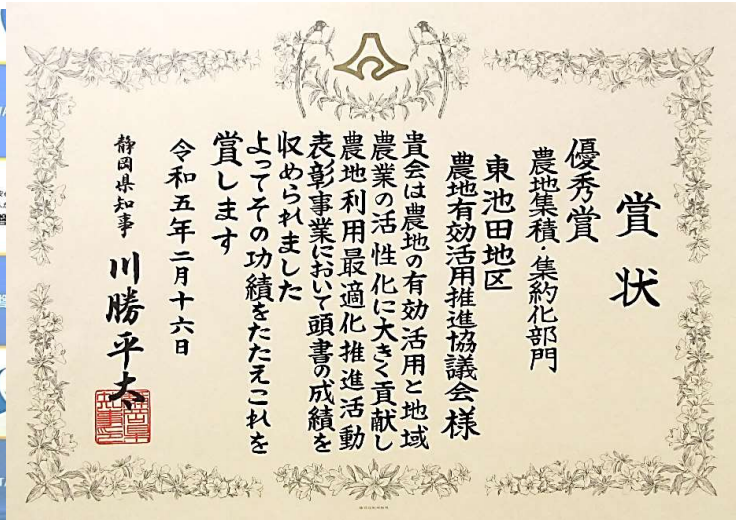 賞状
優秀賞
農地集積・集約化部門
東池田地区
農地有効活用推進協議会様
貴会は農地の有効活用と地域
農業の活性化に大きく貢献し
農地利用最適化推進活動
表彰事業において頭書の成績を
収められました
よってその功績をたたえこれを
賞します
令和五年二月十六日
静岡県知事 川勝平太